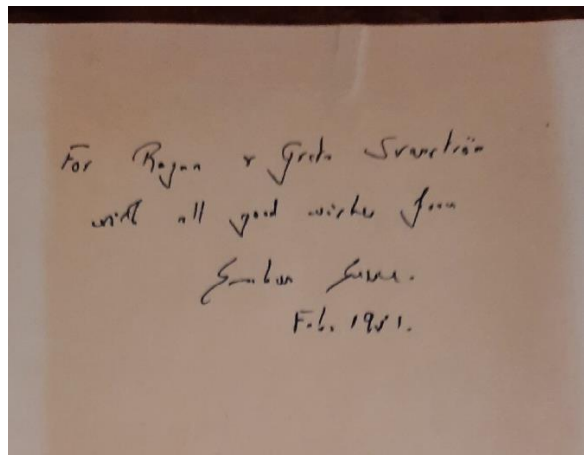 For Ragnar & Greta Svanström
with all good wishes from
Graham Greene.
Feb. 1951.